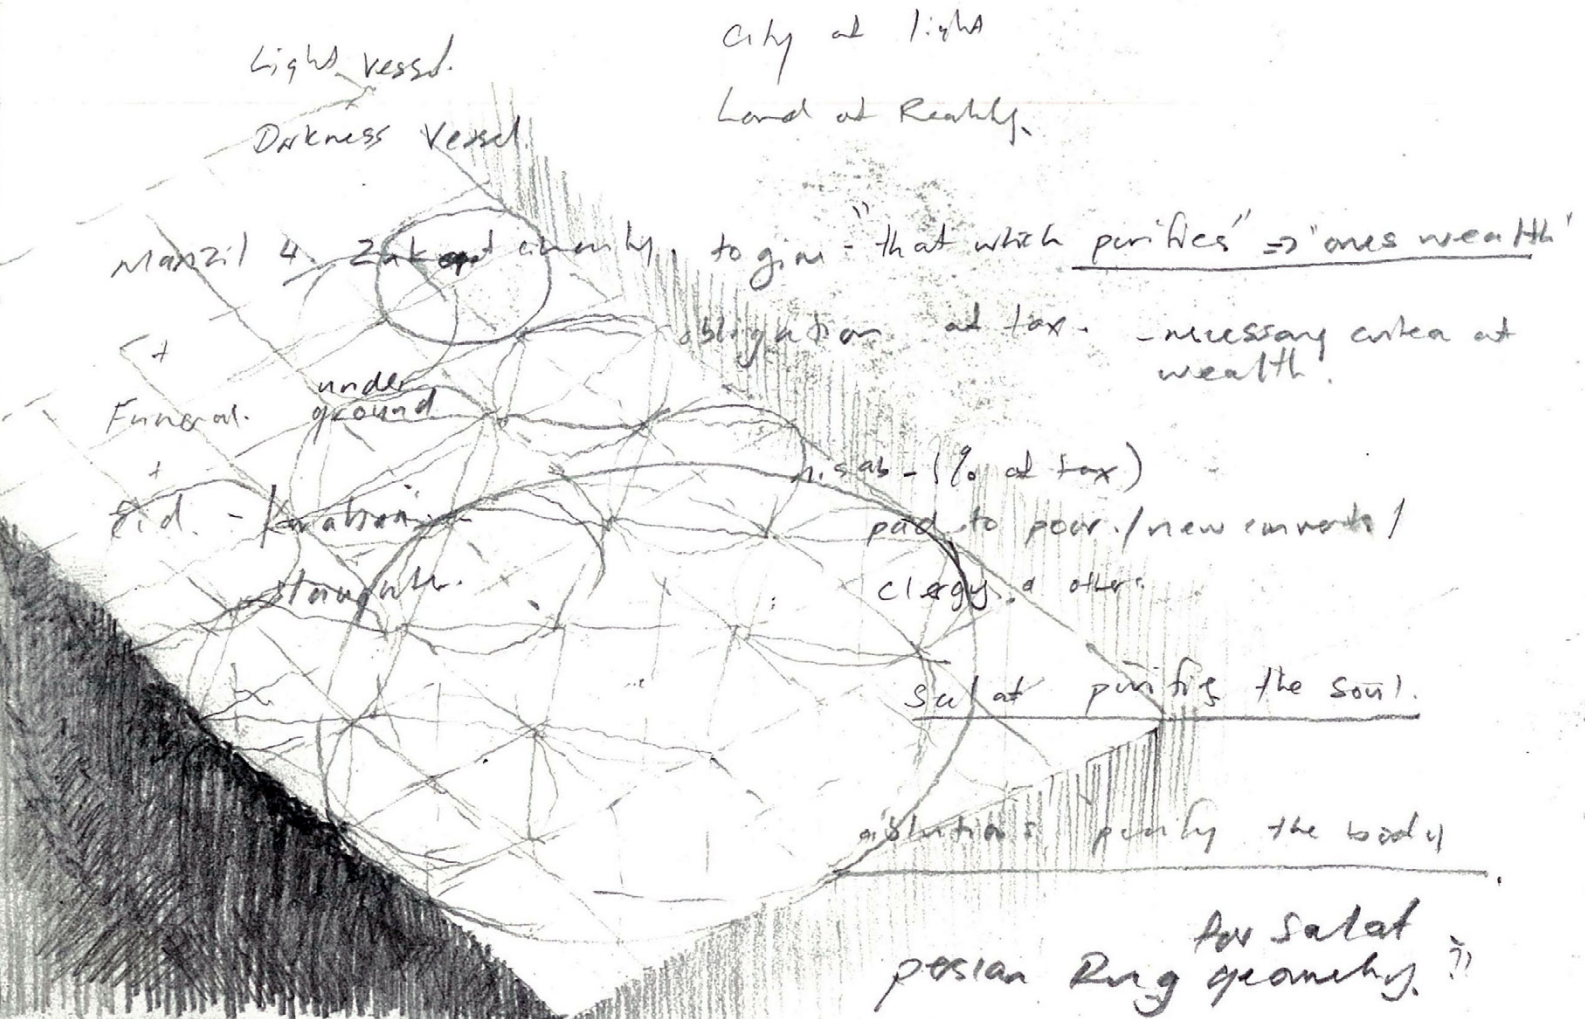 Light vessel.
City of light
Darkness Vessel.
Land of Reality.
Manzil 4. Zakat to give - "that which purifies" => "ones wealth"
obligation of tax. - necessary of
wealth.
+
Funeral. under
ground
+
Eid. -
nisab - (% of tax)
paid to poor / new converts /
clergy & other.
salat purifies the soul.
ablutions purify the body
for salat
persian Rug geometry. ?"